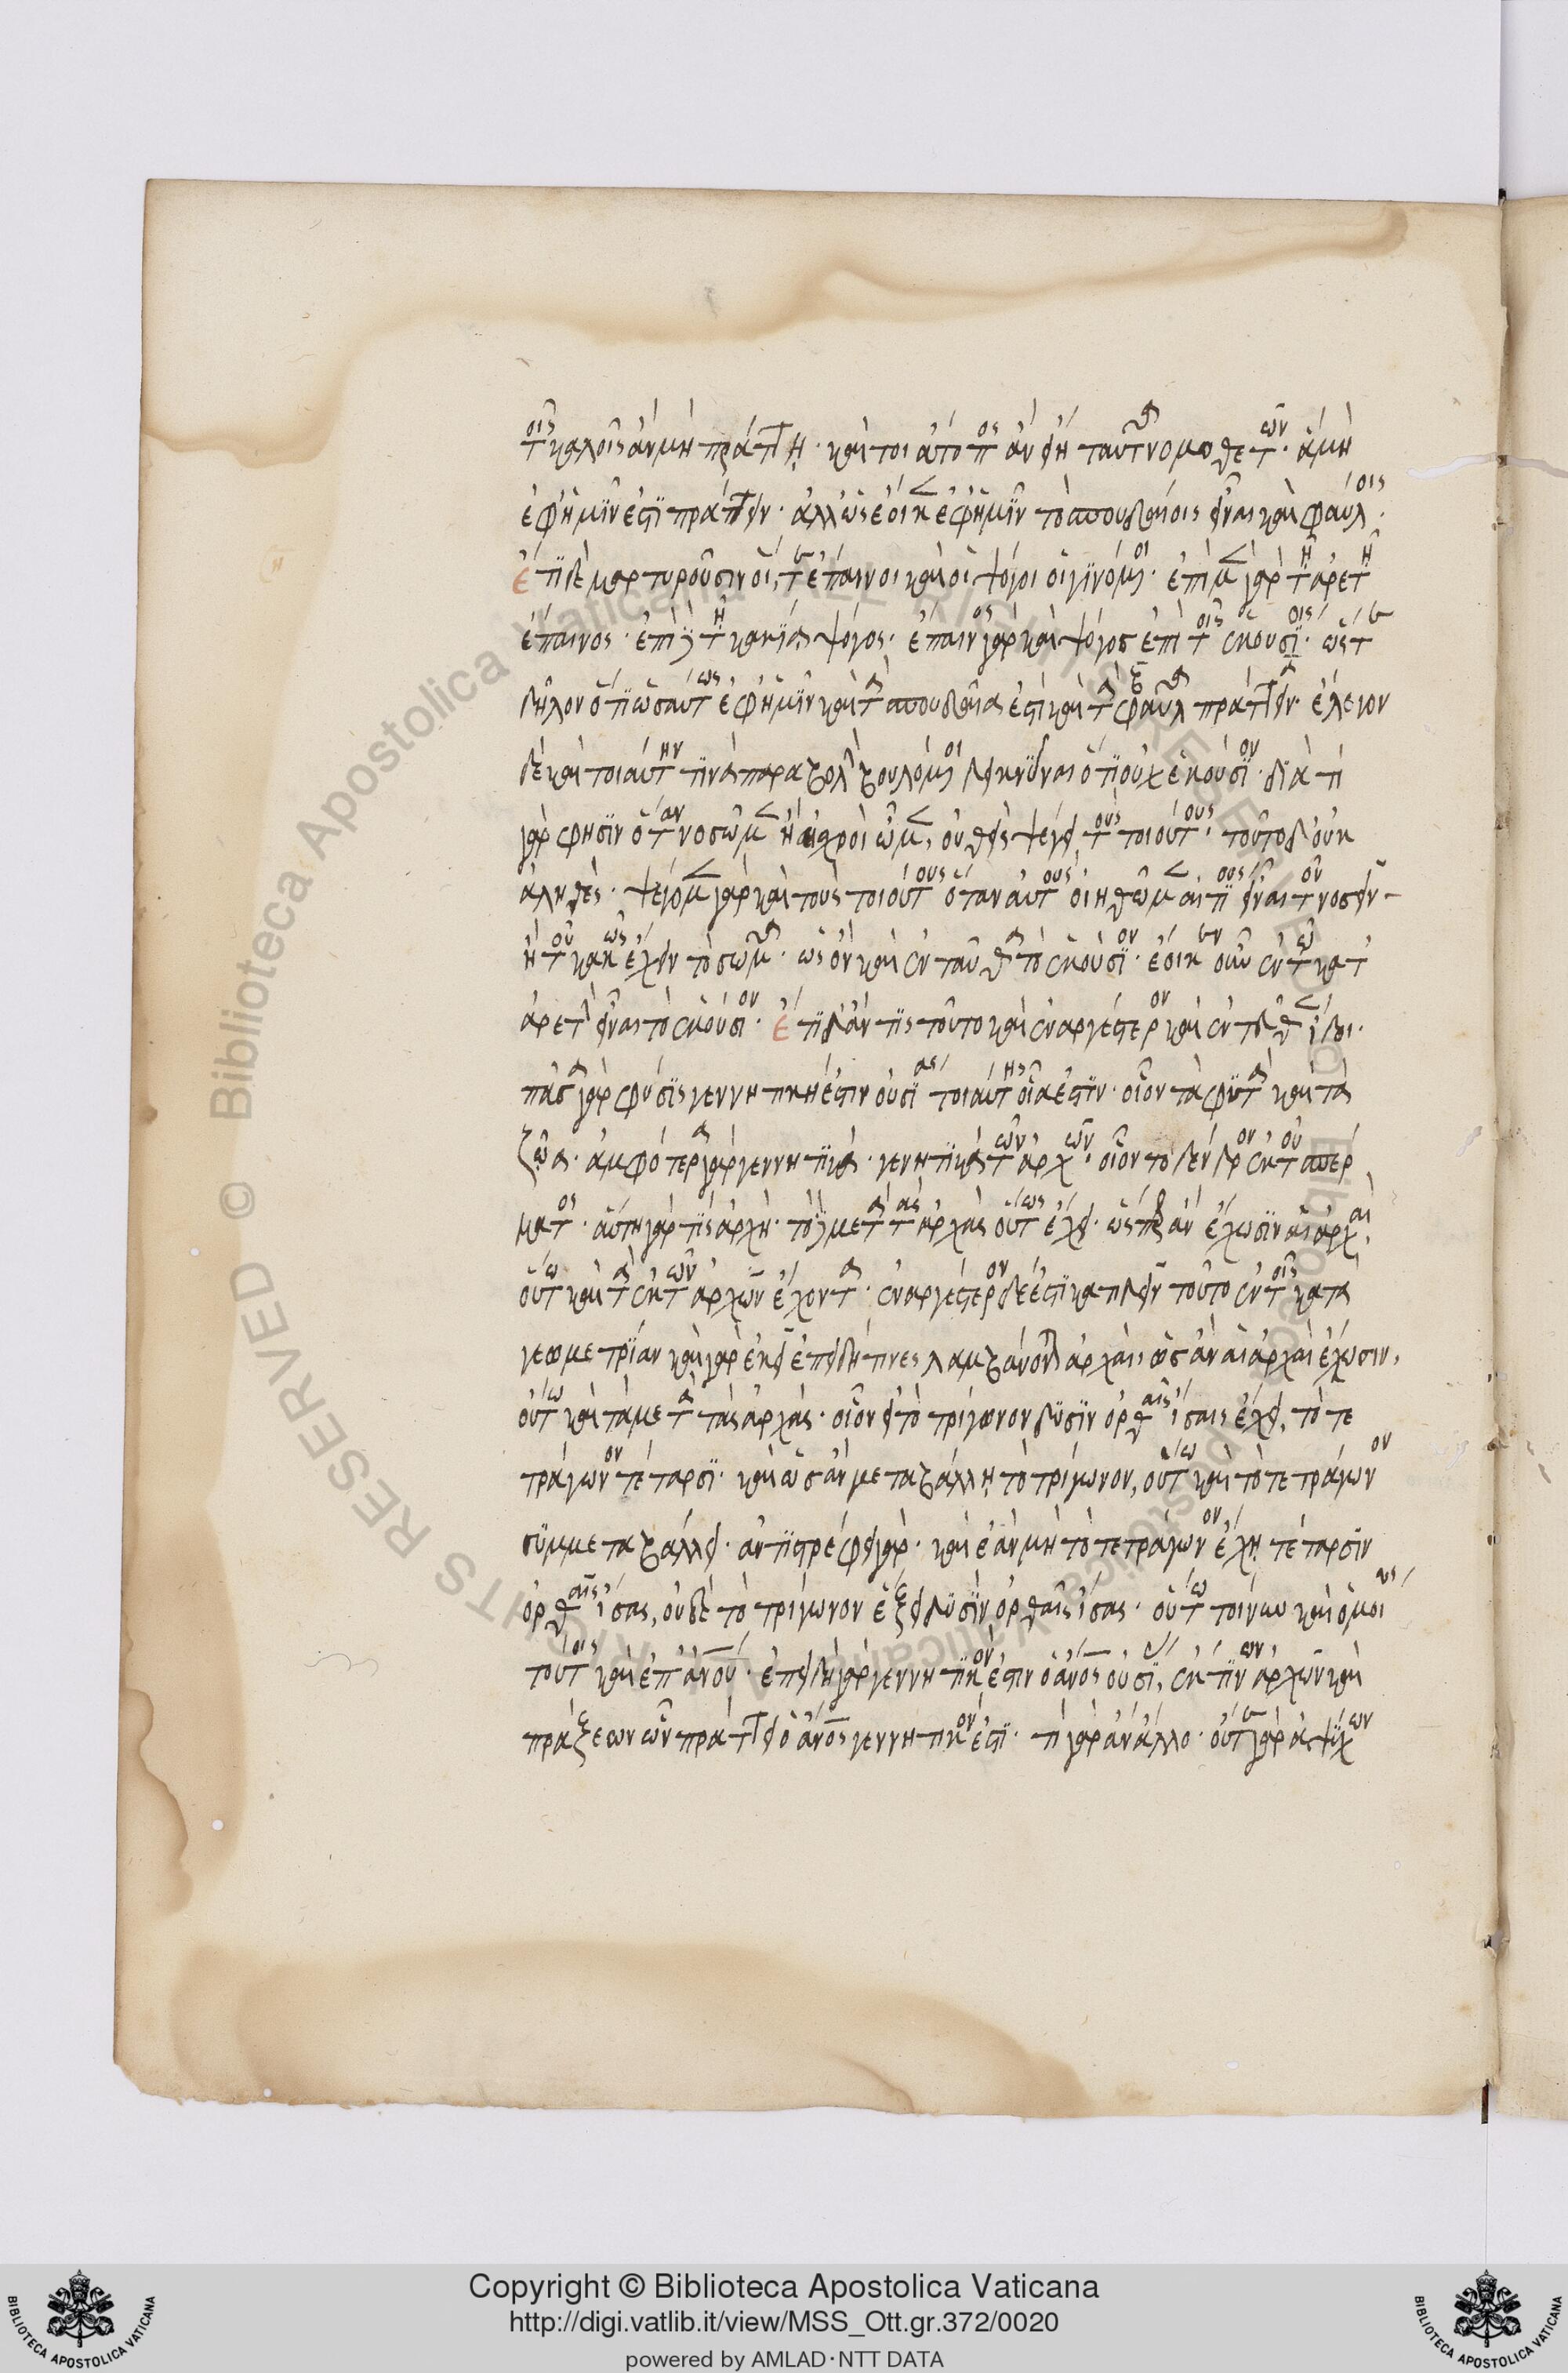 τοῖς καλοῖς ἂν μὴ πράττῃ. καίτοι ἄτοπος ἂν εἴη ταῦτα νομοθετῶν. ἃ μὴ
ἐφ' ἡμῖν ἐστὶ πράττειν. ἀλλ' ὡς ἔοικεν ἐφ' ἡμῖν τὸ σπουδαίοις εἶναι καὶ φαύλοις.
ἔτι δὲ μαρτυροῦσιν οἵ τε ἔπαινοι καὶ οἱ ψόγοι οἱ γινόμενοι. ἐπὶ μὲν γὰρ τῇ ἀρετῇ
ἔπαινος. ἐπὶ δὲ τῇ κακίᾳ ψόγος. ἔπαινος γὰρ καὶ ψόγος ἐπὶ τοῖς ἑκουσίοις. ὥστε
δῆλον ὅτι ὡσαύτως ἐφ' ἡμῖν καὶ τὰ σπουδαῖα ἐστὶ καὶ τὰ φαῦλα πράττειν. ἔλεγον
δὲ καὶ τοιαύτην τινὰ παραβολὴν βουλόμενοι δεικνύναι ὅτι οὐχ ἑκούσιον. διὰ τί
γάρ φησιν ὅταν νοσῶμεν ἢ αἰσχροὶ ὦμεν, οὐθεὶς ψέγει τοὺς τοιούτους. τοῦτο δ' οὐκ
ἀληθές. ψέγομεν γὰρ καὶ τοὺς τοιούτους ὅταν αὐτοὺς οἰηθῶμεν αἰτίους εἶναι τοῦ νοσεῖν
ἢ τοῦ κακῶς ἔχειν τὸ σῶμα. ὡς ὂν καὶ ἐνταῦθα τὸ ἑκούσιον. ἔοικεν οὖν ἐν τῷ κατ'
ἀρετὴν εἶναι τὸ ἑκούσιον. ἔτι δ' ἄν τις τοῦτο καὶ ἐναργέστερον καὶ ἐντεῦθεν ἴδοι.
πᾶσα γὰρ φύσις γεννητική ἐστιν οὐσίας τοιαύτης οἵα ἐστίν. οἷον τὰ φυτὰ καὶ τὰ
ζῷα. ἀμφότερα γὰρ γεννητικά. γενητικὰ τῶν ἀρχῶν. οἷον τὸ δένδρον ἐκ τοῦ σπέρ
ματος. αὕτη γάρ τις ἀρχή. τὸ δὲ μετὰ τὰς ἀρχὰς οὕτως ἔχει. ὥσπερ ἂν ἔχωσιν αἱ ἀρχαὶ,
οὕτω καὶ τὰ ἐκ τῶν ἀρχῶν ἔχοντα. ἐναργέστερον δέ ἐστι κατιδεῖν τοῦτο ἐν τοῖς κατὰ
γεωμετρίαν καὶ γὰρ ἐκεῖ ἐπειδή τινες λαμβάνονται ἀρχαὶ, ὡς ἂν αἱ ἀρχαὶ ἔχωσιν,
οὕτω καὶ τὰ μετὰ τὰς ἀρχάς. οἷον εἰ τὸ τρίγωνον δυσὶν ὀρθαῖς ἴσαις ἔχει, τὸ τε
τράγωνον τέταρσι. καὶ ὡς ἂν μεταβάλλῃ τὸ τρίγωνον, οὕτω καὶ τὸ τετράγωνον
συμμεταβάλλει. ἀντιστρέφει γάρ. καὶ ἐὰν μὴ τὸ τετράγωνον ἔχῃ τέταρσιν
ὀρθαῖς ἴσας, οὐδὲ τὸ τρίγωνον ἕξει δυσὶν ὀρθαῖς ἴσας. οὕτω τοίνυν καὶ ὁμοίως
τούτοις καὶ ἐπ' ἀνου. ἐπειδὴ γὰρ γεννητικόν ἐστιν ὁ ανος οὐσίας, ἔκ τινων ἀρχῶν καὶ
πράξεων ὧν πράττει ὁ ανος γεννητικόν ἐστι. τί γὰρ ἂν ἄλλο. οὔτε γὰρ ἀψύχων